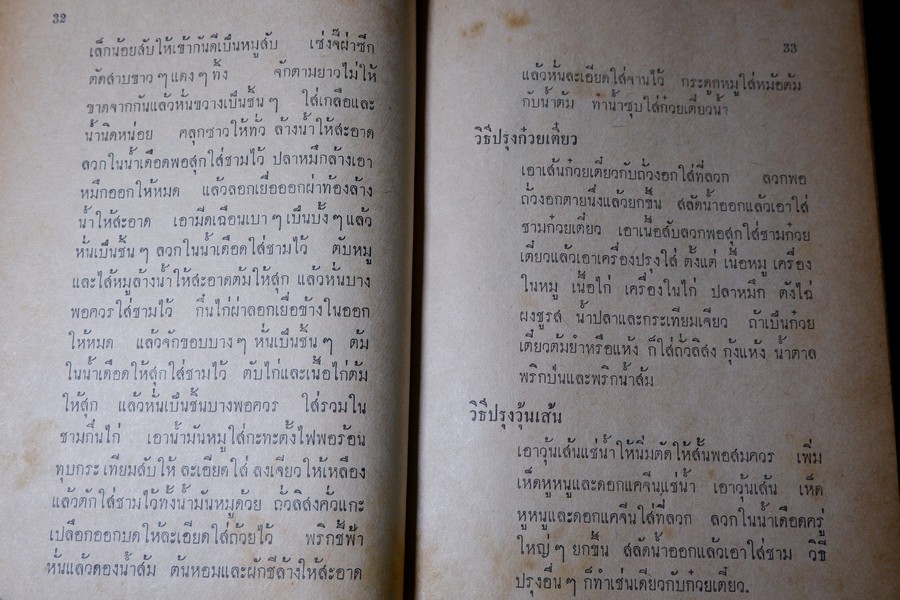 32
เล็กน้อยสับให้เข้ากันดีเป็นหมูสับ เซ่งจี๊ผ่าซีก
ตัดสาบขาว ๆ แดง ๆ ทิ้ง จักตามยาวไม่ให้
ขาดจากกันแล้วหั่นขวางเป็นชิ้น ๆ ใส่เกลือและ
น้ำนิดหน่อย คลุกซาวให้ทั่ว ล้างน้ำให้สะอาด
ลวกในน้ำเดือดพอสุกใส่ชามไว้ ปลาหมึกล้างเอา
หมึกออกให้หมด แล้วลอกเยื่อออกผ่าท้องล้าง
น้ำให้สะอาด เอามีดเฉือนเบา ๆ เป็นบั้ง ๆ แล้ว
หั่นเป็นชิ้น ๆ ลวกในน้ำเดือดใส่ชามไว้ ตับหมู
และไส้หมูล้างน้ำให้สะอาดต้มให้สุก แล้วหั่นบาง
พอควรใส่ชามไว้ กึ๋นไก่ผ่าลอกเยื่อข้างในออก
ให้หมด แล้วจักขอบบาง ๆ หั่นเป็นชิ้น ๆ ต้ม
ในน้ำเดือดให้สุกใส่ชามไว้ ตับไก่และเนื้อไก่ต้ม
ให้สุก แล้วหั่นเป็นชิ้นบางพอควร ใส่รวมใน
ชามกึ๋นไก่ เอาน้ำมันหมูใส่กะทะตั้งไฟพอร้อน
ทุบกระเทียมสับให้ละเอียดใส่ ลงเจียวให้เหลือง
แล้วตักใส่ชามไว้ทั้งน้ำมันหมูด้วย ถั่วลิสงคั่วแกะ
เปลือกออกบดให้ละเอียดใส่ถ้วยไว้ พริกชี้ฟ้า
หั่นแล้วดองน้ำส้ม ต้นหอมและผักชีล้างให้สะอาด
33
แล้วหั่นละเอียดใส่จานไว้ กระดูกหมูใส่หม้อต้ม
กับน้ำต้ม ทำน้ำซุบใส่ก๋วยเตี๋ยวน้ำ
วิธีปรุงก๋วยเตี๋ยว
เอาเส้นก๋วยเตี๋ยวกับถั่วงอกใส่ที่ลวก ลวกพอ
ถั่วงอกตายนึ่งแล้วยกขึ้น สลัดน้ำออกแล้วเอาใส่
ชามก๋วยเตี๋ยว เอาเนื้อสับลวกพอสุกใส่ชามก๋วย
เตี๋ยวแล้วเอาเครื่องปรุงใส่ ตั้งแต่ เนื้อหมู เครื่อง
ในหมู เนื้อไก่ เครื่องในไก่ ปลาหมึก ตังไฉ่
ผงชูรส น้ำปลาและกระเทียมเจียว ถ้าเป็นก๋วย
เตี๋ยวต้มยำหรือแห้ง ก็ใส่ถั่วลิสง กุ้งแห้ง น้ำตาล
พริกป่นและพริกน้ำส้ม
วิธีปรุงวุ้นเส้น
เอาวุ้นเส้นแช่น้ำให้นิ่มตัดให้สั้นพอสมควร เพิ่ม
เห็ดหูหนูและดอกแคจีนแช่น้ำ เอาวุ้นเส้น เห็ด
หูหนูและดอกแคจีนใส่ที่ลวก ลวกในน้ำเดือดครู่
ใหญ่ ๆ ยกขึ้น สลัดน้ำออกแล้วเอาใส่ชาม วิธี
ปรุงอื่น ๆ ก็ทำเช่นเดียวกับก๋วยเตี๋ยว.